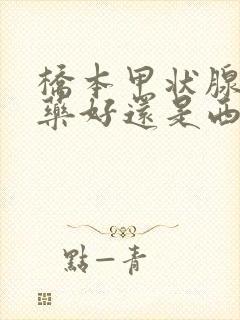 橋本甲状腺
藥好還是西
點一青